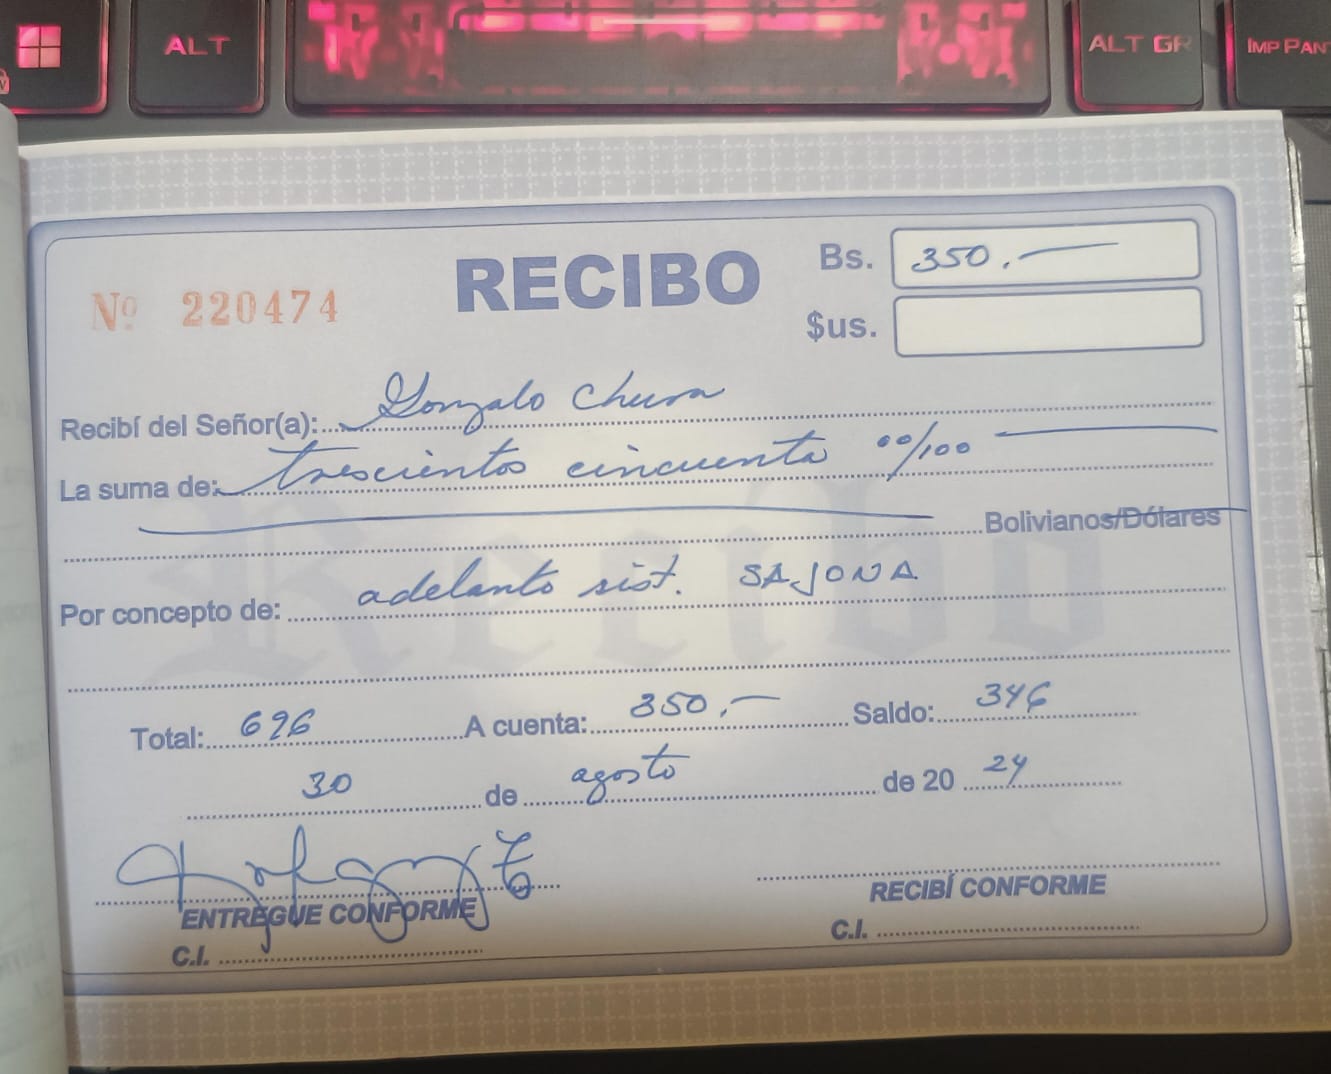 ALT
ALT GR
IMP PAN
RECIBO
Bs. 350.-
Nº 220474
$us.
Recibí del Señor(a): Gonzalo Chura
La suma de: trescientos cincuenta 00/100
Bolivianos/Dólares
Por concepto de: adelanto sist. SAJONA
Total: 696 A cuenta: 350.- Saldo: 346
30 de agosto de 2024
ENTREGUE CONFORME
RECIBÍ CONFORME
C.I.
C.I.